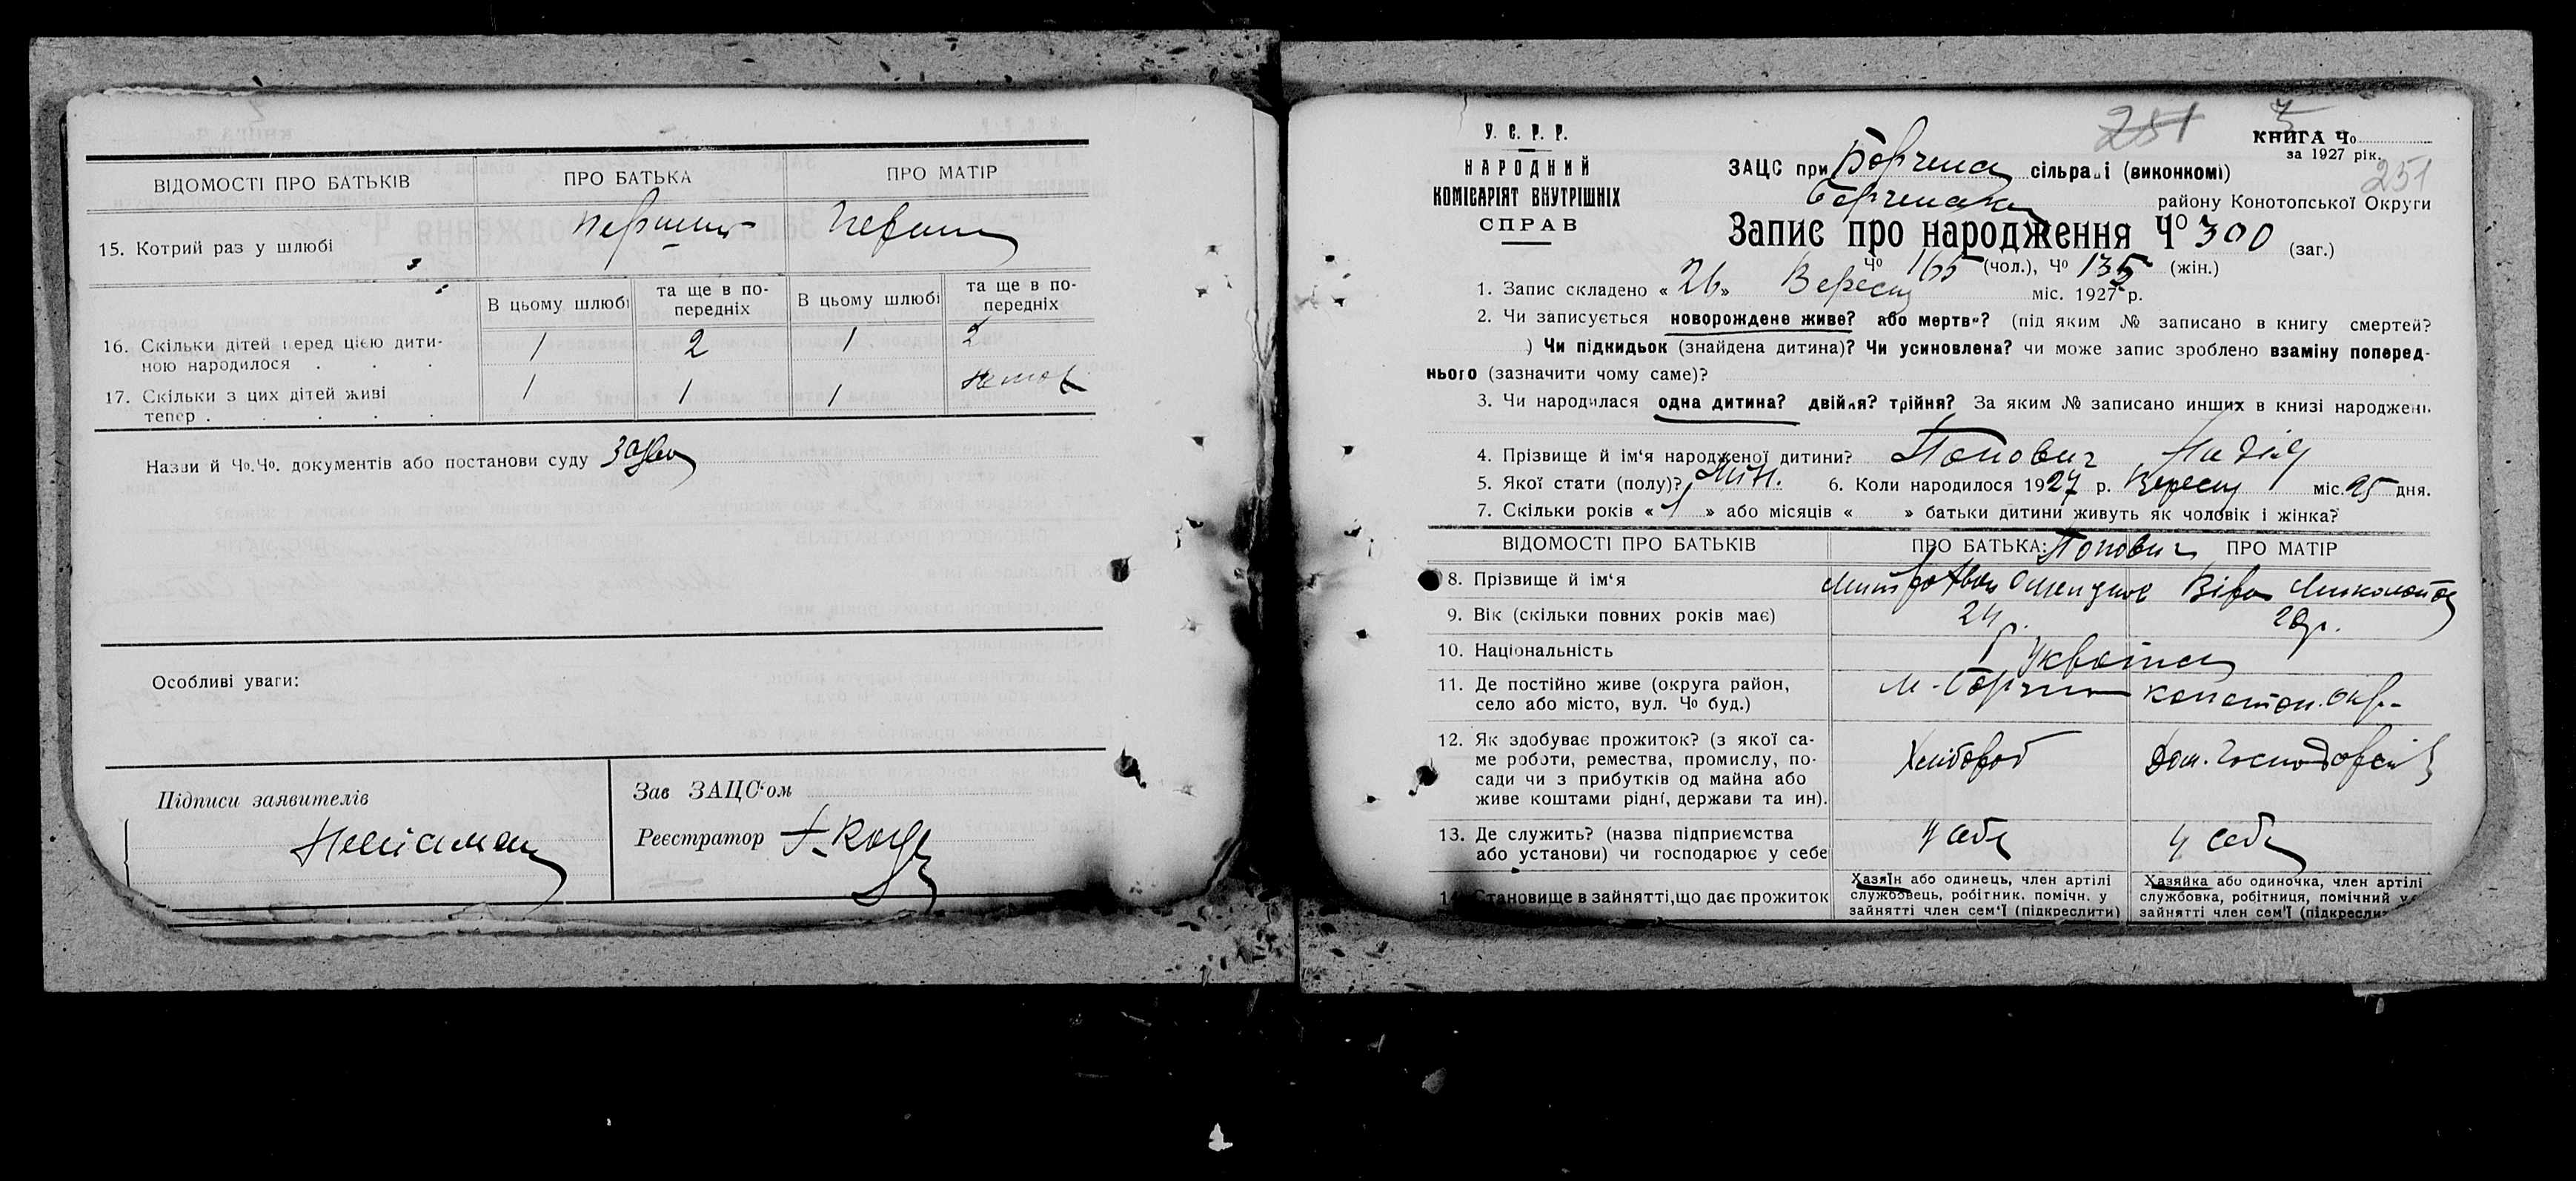 ВІДОМОСТІ ПРО БАТЬКІВ
ПРО БАТЬКА
ПРО МАТІР
15. Котрий раз у шлюбі
В цьому шлюбі
та ще в по-
передніх
В цьому шлюбі
та ще в по-
передніх
16. Скільки дітей перед цією дити-
ною народилося . . .
1 2 1 2
17. Скільки з цих дітей живі
тепер . . . . . .
1 1 1
Назви й Чо.Чо. документів або постанови суду
Особливі уваги:
Підписи заявителів
Неписьмен
Зав ЗАЦС'ом
Реєстратор
У. С. Р. Р.
НАРОДНИЙ
КОМІСАРІЯТ ВНУТРІШНІХ
СПРАВ
251
КНИГА Чо
за 1927 рік.
251
ЗАЦС при Борзенс сільраді (виконкомі)
Борзенськ району Конотопської Округи
Запис про народження Чо 300 (заг.)
Чо 165 (чол.), Чо 135 (жін.)
1. Запис складено « 26 » Вересня міс. 1927 р.
2. Чи записується новорождене живе? або мертве? (під яким № записано в книгу смертей?
) Чи підкидьок (знайдена дитина)? Чи усиновлена? чи може запис зроблено взаміну поперед-
нього (зазначити чому саме)?
3. Чи народилася одна дитина? двійня? трійня? За яким № записано инших в книзі народжень
4. Прізвище й ім'я народженої дитини? Попович Надія
5. Якої стати (полу)? жін. 6. Коли народилося 1927 р. Вересня міс. 25 дня.
7. Скільки років « 1 » або місяців « » батьки дитини живуть як чоловік і жінка?
ВІДОМОСТІ ПРО БАТЬКІВ
ПРО БАТЬКА: Попович ПРО МАТІР
8. Прізвище й ім'я
Митрофан Віра Миколаєв
9. Вік (скільки повних років має)
24 р.
10. Національність
Українці
11. Де постійно живе (округа район,
село або місто, вул. Чо буд.)
м. Борзна Конотоп. окр.
12. Як здобуває прожиток? (з якої са-
ме роботи, ремества, промислу, по-
сади чи з прибутків од майна або
живе коштами рідні, держави та ин).
Хлібороб
Дом. господарка
13. Де служить? (назва підприємства
або установи) чи господарює у себе
у себе
у себе
14. Становище в зайнятті,що дає прожиток
Хазяїн або одинець, член артілі
службовець, робітник, помічн. у
зайнятті член сем'ї (підкреслити)
Хазяйка або одиночка, член артілі
службовка, робітниця, помічний у
зайнятті член сем'ї (підкресли